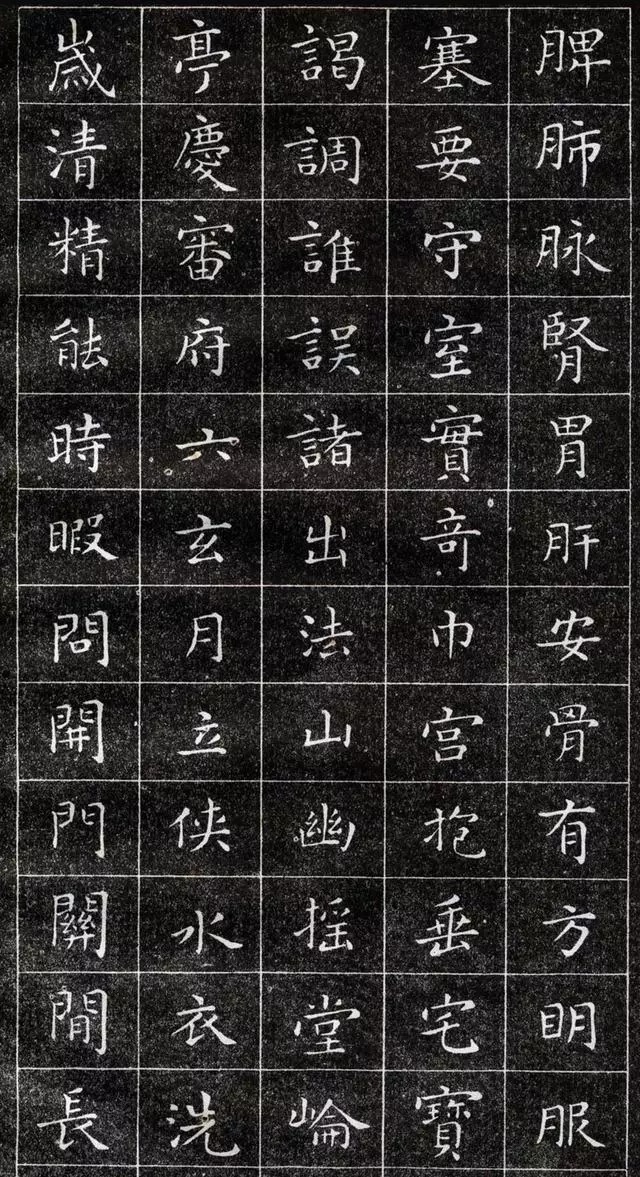 脾肺脉腎胃肝安骨有方明服
塞要守室實奇巾宫抱垂宅寶
謁調誰誤諸出法山幽摇堂崘
亭慶審府六玄月立侠水衣洗
歳清精能時暇問開門關閒長